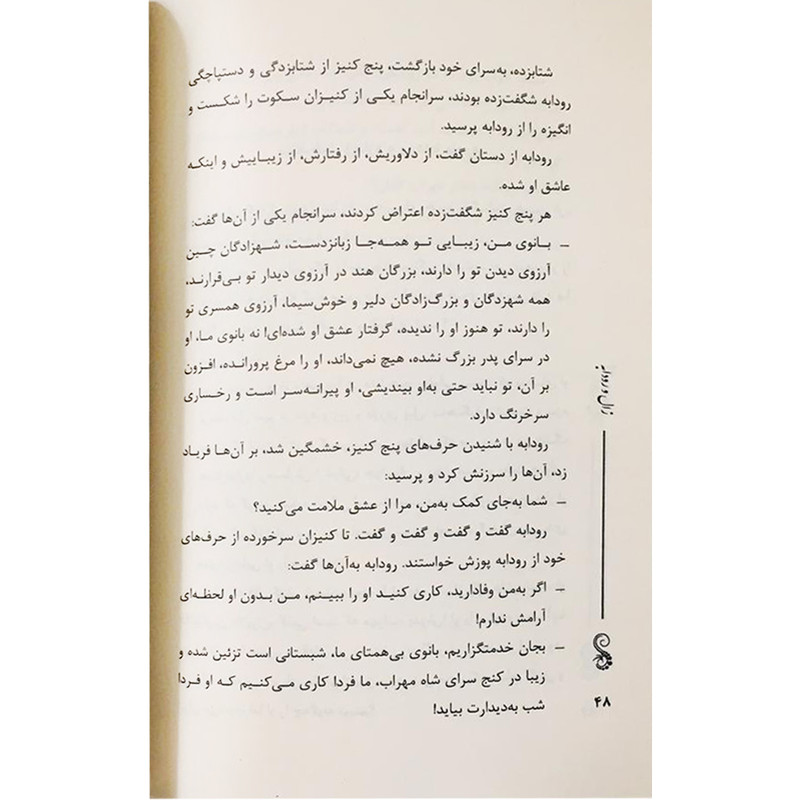 شتابزده، به‌سرای خود بازگشت، پنج کنیز از شتابزدگی و دستپاچگی
رودابه شگفت‌زده بودند، سرانجام یکی از کنیزان سکوت را شکست و
انگیزه را از رودابه پرسید.
رودابه از دستان گفت، از دلاوریش، از رفتارش، از زیباییش و اینکه
عاشق او شده.
هر پنج کنیز شگفت‌زده اعتراض کردند، سرانجام یکی از آن‌ها گفت:
– بانوی من، زیبایی تو همه‌جا زبانزدست، شهزادگان چین
آرزوی دیدن تو را دارند، بزرگان هند در آرزوی دیدار تو بی‌قرارند،
همه شهزدگان و بزرگ‌زادگان دلیر و خوش‌سیما، آرزوی همسری تو
را دارند، تو هنوز او را ندیده، گرفتار عشق او شده‌ای! نه بانوی ما، او
در سرای پدر بزرگ نشده، هیچ نمی‌داند، او را مرغ پرورانده، افزون
بر آن، تو نباید حتی به‌او بیندیشی، او پیرانه‌سر است و رخساری
سرخرنگ دارد.
رودابه با شنیدن حرف‌های پنج کنیز، خشمگین شد، بر آن‌ها فریاد
زد، آن‌ها را سرزنش کرد و پرسید:
– شما به‌جای کمک به‌من، مرا از عشق ملامت می‌کنید؟
رودابه گفت و گفت و گفت و گفت. تا کنیزان سرخورده از حرف‌های
خود از رودابه پوزش خواستند. رودابه به‌آن‌ها گفت:
– اگر به‌من وفادارید، کاری کنید او را ببینم، من بدون او لحظه‌ای
آرامش ندارم!
– بجان خدمتگزاریم، بانوی بی‌همتای ما، شبستانی است تزئین شده و
زیبا در کنج سرای شاه مهراب، ما فردا کاری می‌کنیم که او فردا
شب به‌دیدارت بیاید!
زال و رودابه
۴۸